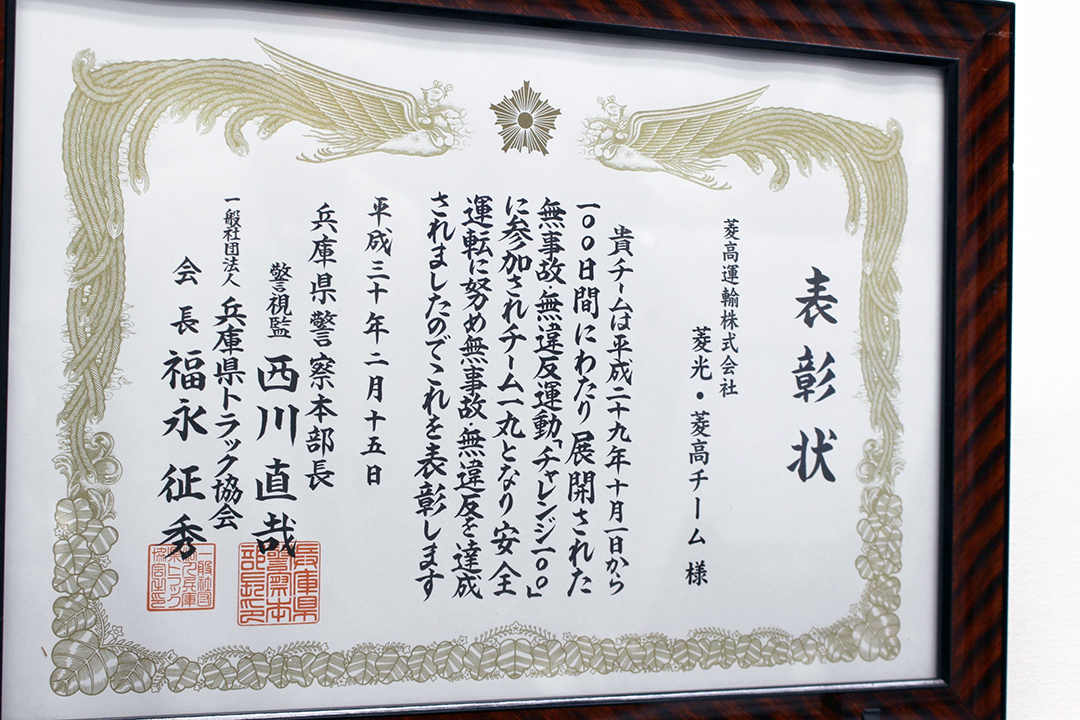 表彰状
菱高運輸株式会社
菱光・菱高チーム 様
貴チームは平成二十九年十月一日から
一〇〇日間にわたり展開された
無事故・無違反運動「チャレンジ一〇〇」
に参加されチーム一丸となり安全
運転に努め無事故・無違反を達成
されましたのでこれを表彰します
平成三十年二月十五日
兵庫県警察本部長
警視監 西川直哉
一般社団法人 兵庫県トラック協会
会長 福永征秀
兵庫県
警察本
部長印
一般社団
法人兵庫
県トラック
協会之印